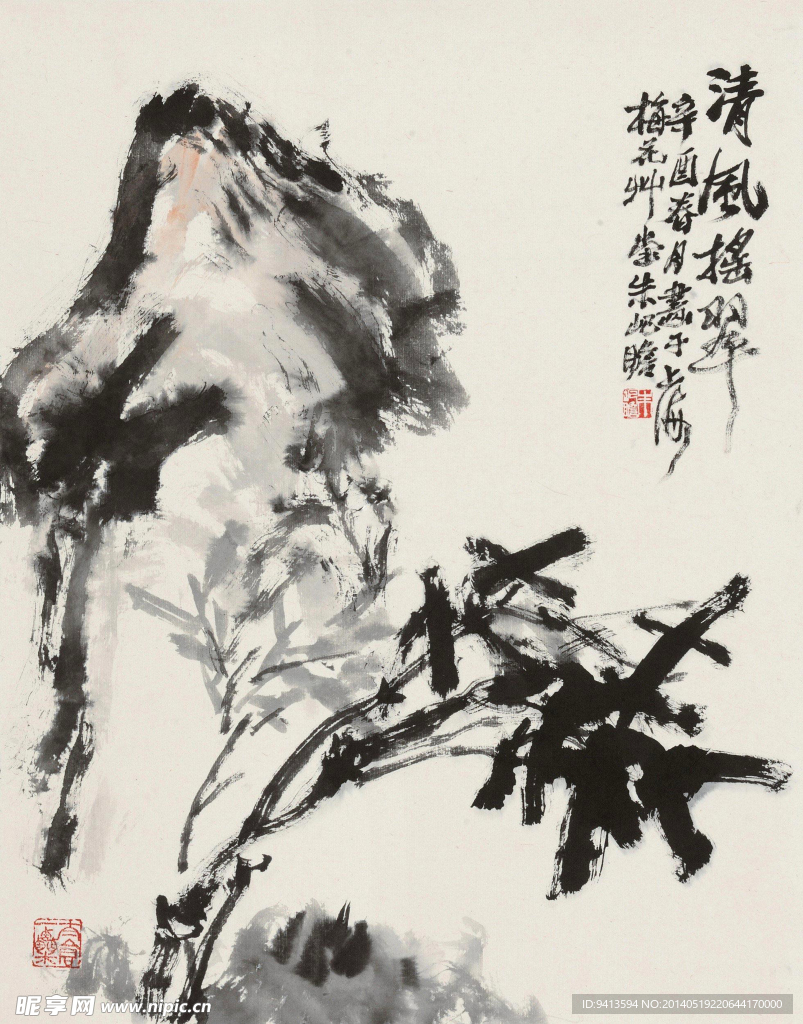 清風搖翠
辛酉春月畫于上海
梅花艸堂朱屺瞻
昵享网 www.nipic.cn
ID:9413594 NO:20140519220644170000